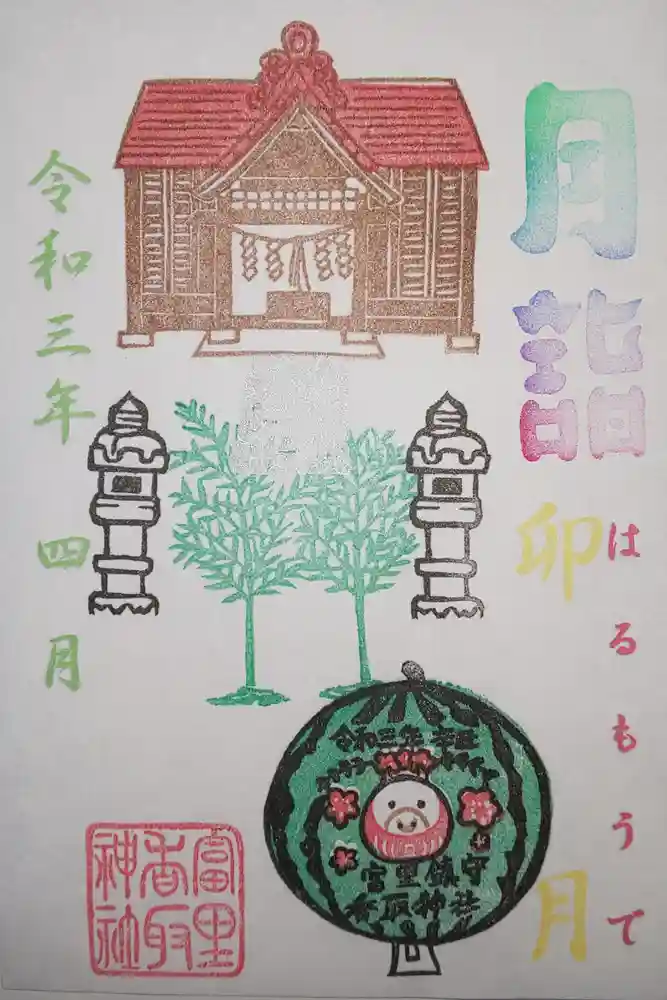 月詣
はるもうで
卯月
令和三年 四月
令和三年 辛丑
富里鎮守
香取神社
富里
香取
神社